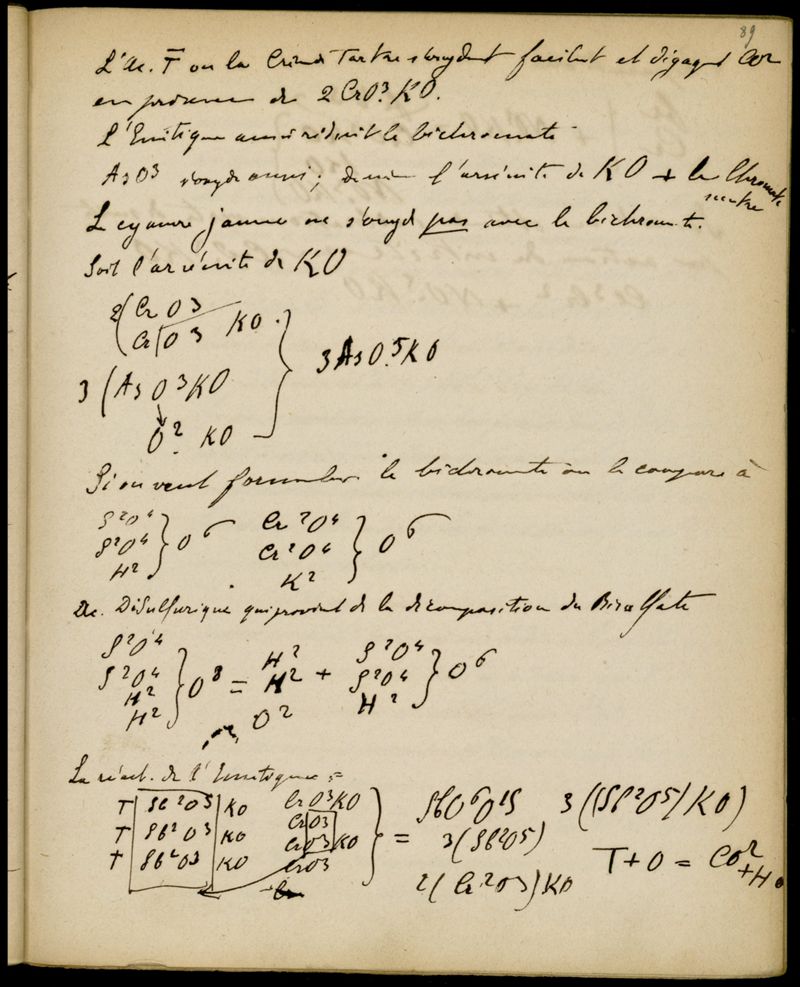 89
L'Ac. T ou la Crème Tartre s'oxydent facilent et dégagent CO2
en présence de 2 CrO3.KO.
L'Emétique aussi réduit le bichromate
AsO3 s'oxyde aussi; l'arsénite de KO + le Chromate
neutre
Le cyanure jaune ne s'oxyd pas avec le bichromate.
Soit l'arsénite de KO
2(CrO3
CrO3 KO.
3 (AsO3KO
O2 KO
3AsO.5KO
Si on veut formuler le bichromate on le compare à
S2O4
S2O4
H2
O6
Cr2O4
Cr2O4
K2
O6
Ac. Disulfurique qui provient de la décomposition du Bisulfate
S2O4
S2O4
H2
H2
O8 =
H2
H2
O2
+
S2O4
S2O4
H2
O6
La réact. de l'Emétique =
T Sb2O3 KO CrO3KO
T Sb2O3 KO CrO3
T Sb2O3 KO CrO3KO
CrO3
=
SbO6O15 3((Sb2O5)KO)
3(Sb2O5)
2(Cr2O3)KO
T+O = CO2
+HO